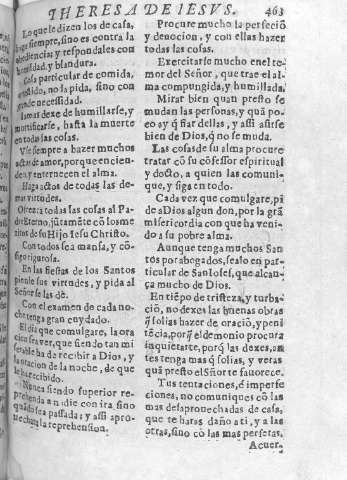 THERESA DE IESVS. 463
Lo que le dizen los de casa,
haga siempre, sino es contra la
obediencia: y respondales con
humildad, y blandura.
Cosa particular de comida,
o vestido, no la pida, sino con
grande necessidad.
Iamas dexe de humillarse, y
mortificarse, hasta la muerte
en todas las cosas.
Vse siempre a hazer muchos
actos de amor, porque encien-
den, y enternecen el alma.
Haga actos de todas las de-
mas virtudes.
Ofrezca todas las cosas al Pa-
dre Eterno, jũtamẽte cõ los me
ritos de su Hijo Iesu Christo.
Con todos sea mansa, y cõ-
sigo rigurosa.
En las fiestas de los Santos
piense sus virtudes, y pida al
Señor se las dè.
Con el examen de cada no-
che tenga gran cuydado.
El dia que comulgare, la ora
cion sea ver, que siendo tan mi
serable ha de recibir a Dios, y
la oracion de la noche, de que
le ha recibido.
Nunca siendo superior re-
prehenda a nadie con ira, sino
quãdo sea passada: y assi apro-
uecharà la reprehension.
Procure mucho la perfeciõ
y deuocion, y con ellas hazer
todas las cosas.
Exercitarse mucho en el te-
mor del Señor, que trae el al-
ma compungida, y humillada.
Mirar bien quan presto se
mudan las personas, y quã po-
co ay q̃ fiar dellas, y assi asirse
bien de Dios, q̃ no se muda.
Las cosas de su alma procure
tratar cõ su cõfessor espiritual
y docto, a quien las comuni-
que, y siga en todo.
Cada vez que comulgare, pi
da a Dios algun don, por la grã
misericordia con que ha veni-
do a su pobre alma.
Aunque tenga muchos San
tos por abogados, sealo en par-
ticular de San Iosef, que alcan-
ça mucho de Dios.
En tiẽpo de tristeza, y turba-
ciõ, no dexes las buenas obras
q̃ solias hazer de oraciõ, y peni
tẽcia, porq̃ el demonio procura
inquietarte, porq̃ las dexes, an-
tes tenga mas q̃ solias, y veras
quã presto el Señor te fauorece.
Tus tentaciones, è imperfe-
ciones, no comuniques cõ las
mas desaprouechadas de casa,
que te haras daño a ti, y a las
otras, sino cõ las mas perfetas.
Acuer-